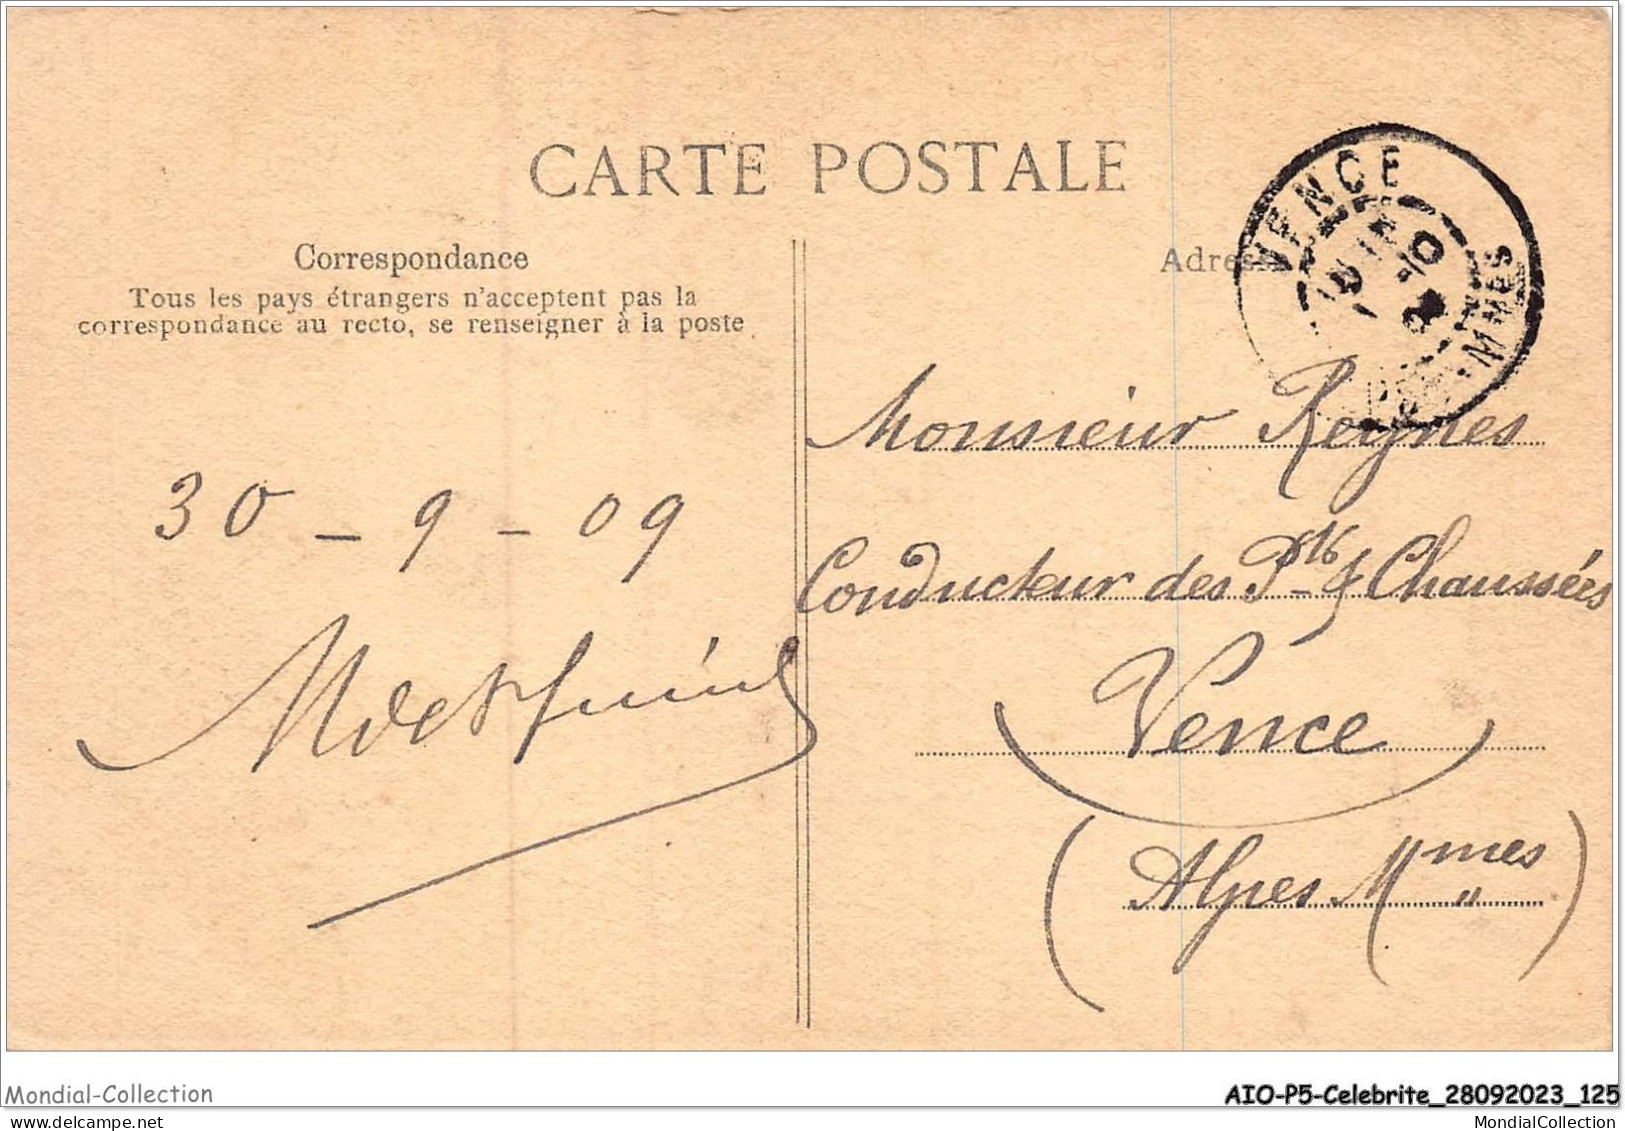 CARTE POSTALE
Correspondance
Tous les pays étrangers n'acceptent pas la
correspondance au recto, se renseigner à la poste
30 - 9 - 09
Adres
VENCE
Monsieur Reynes
Conducteur des Pts & Chaussées
Vence
(Alpes Mmes)
Mondial-Collection
AIO-P5-Celebrite_28092023_125
MondialCollection